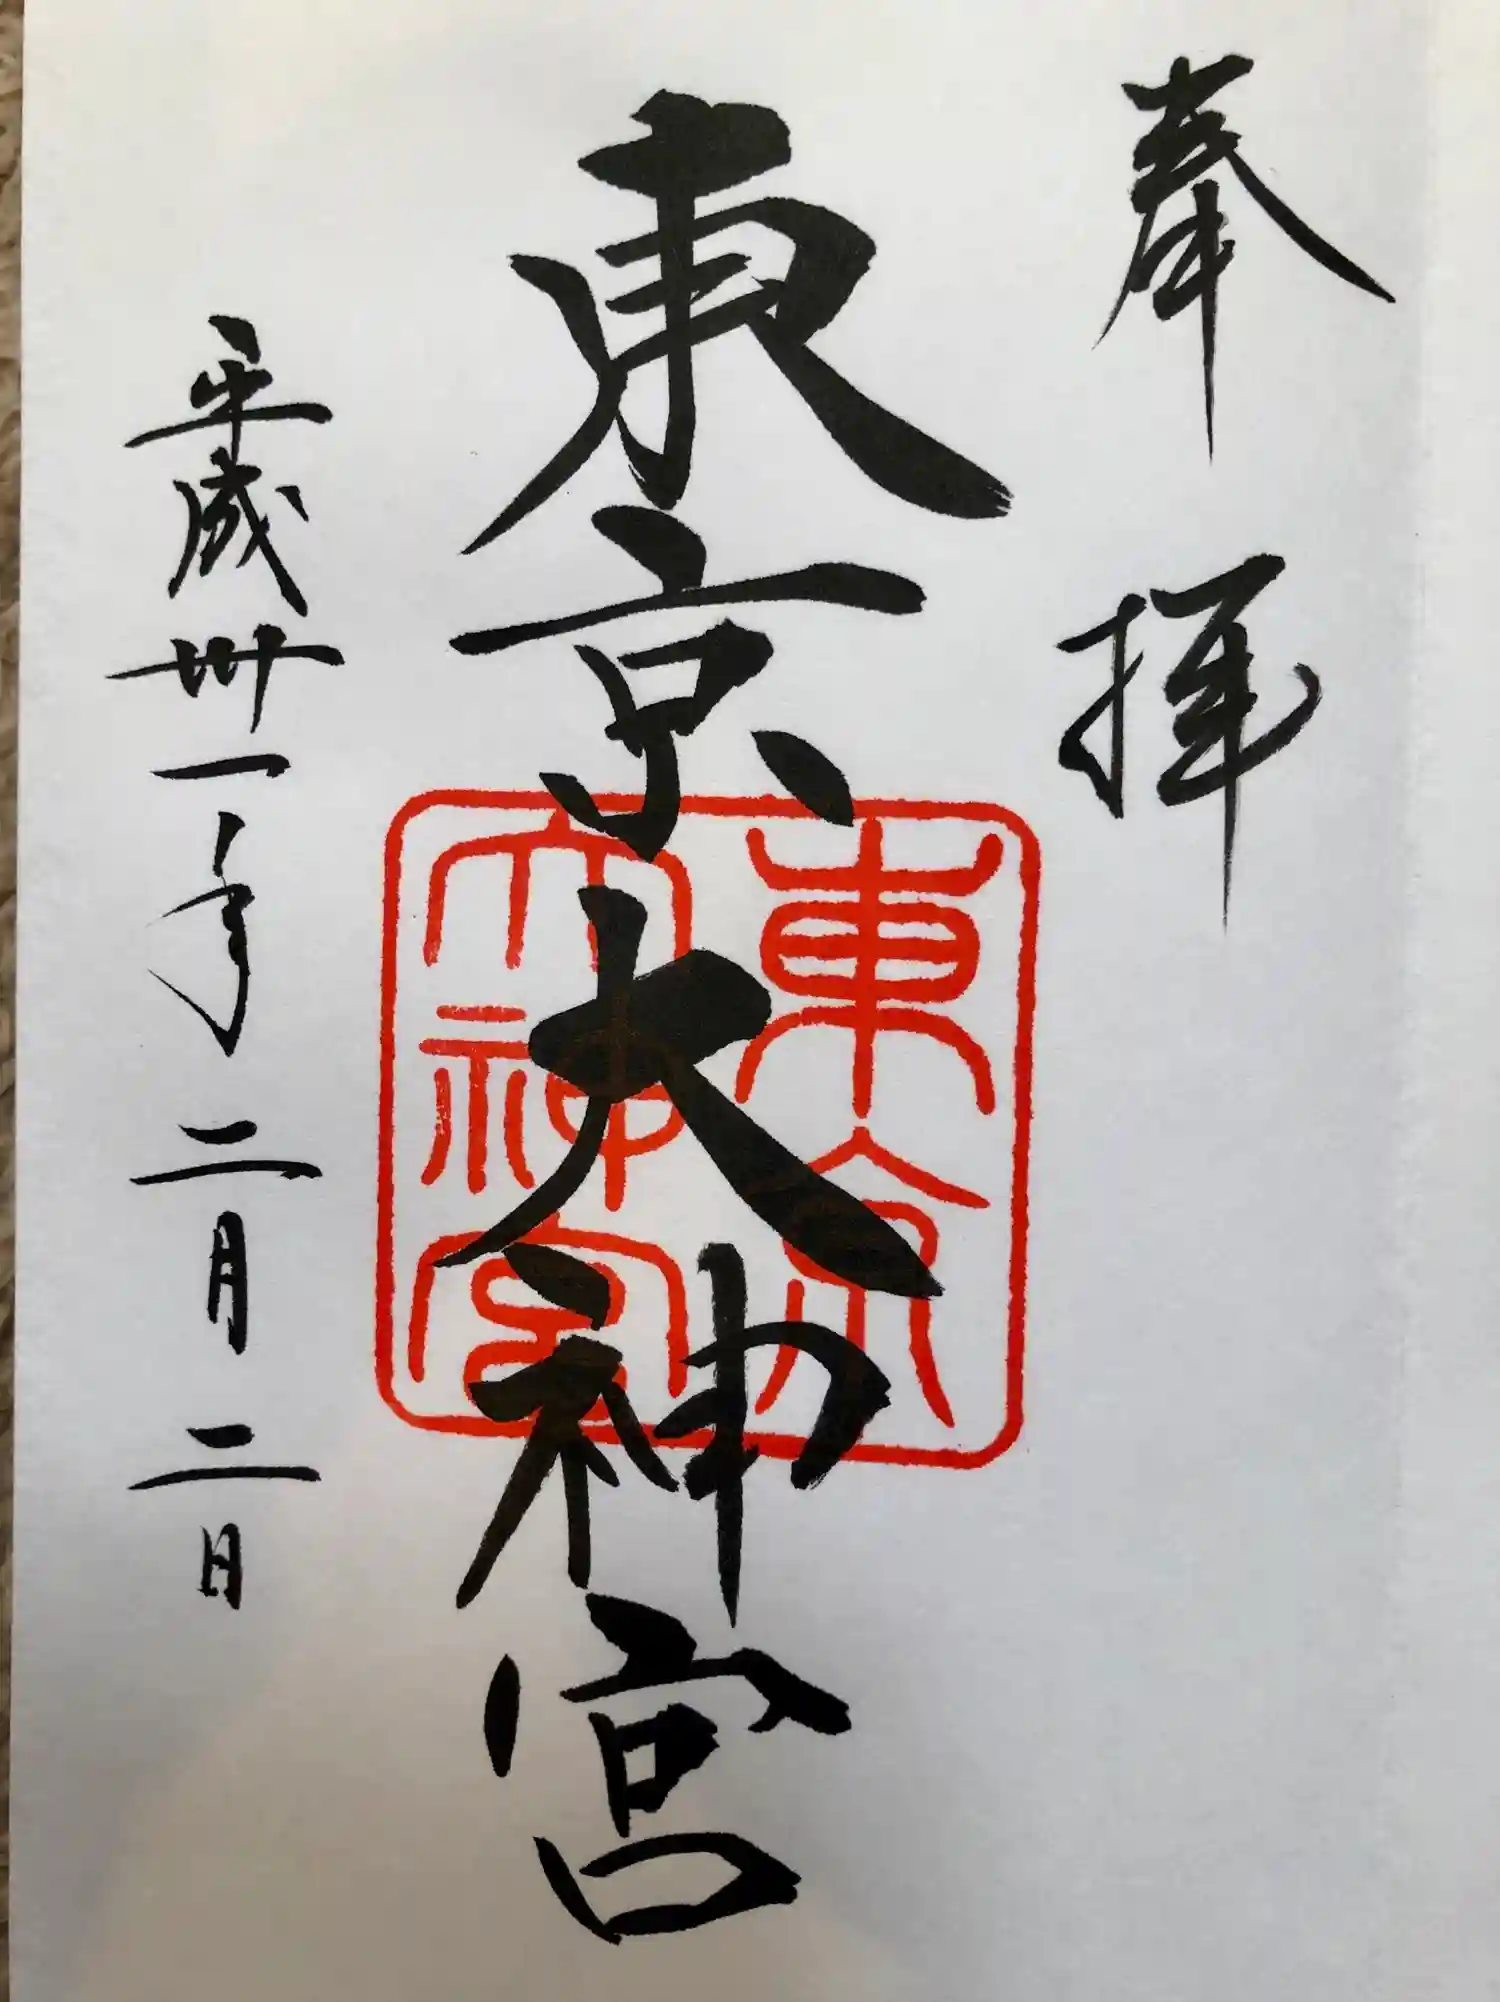 奉拝
東京大神宮
東京
大神宮
平成卅一年二月二日